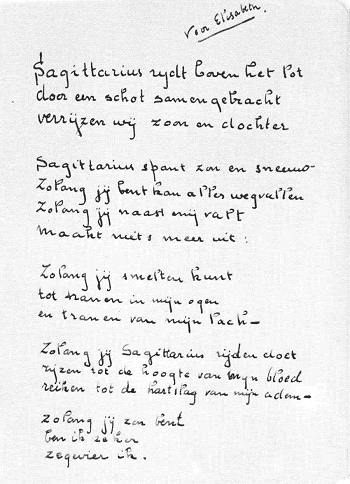 Voor Elisabeth.
Sagittarius rydt boven het lot
door een schot samengebracht
verrijzen wij zoon en dochter
Sagittarius spant zon en sneeuw
Zolang jij bent kan alles wegvallen
Zolang jij naast mij valt
maakt niets meer uit:
Zolang jij smelten kunt
tot tranen in mijn ogen
en tranen van mijn lach_
Zolang jij Sagittarius rijden doet
rijzen tot de hoogte van mijn bloed
reiken tot de hartslag van mijn adem_
zolang jij zon bent
ben ik zeker
zegevier ik.